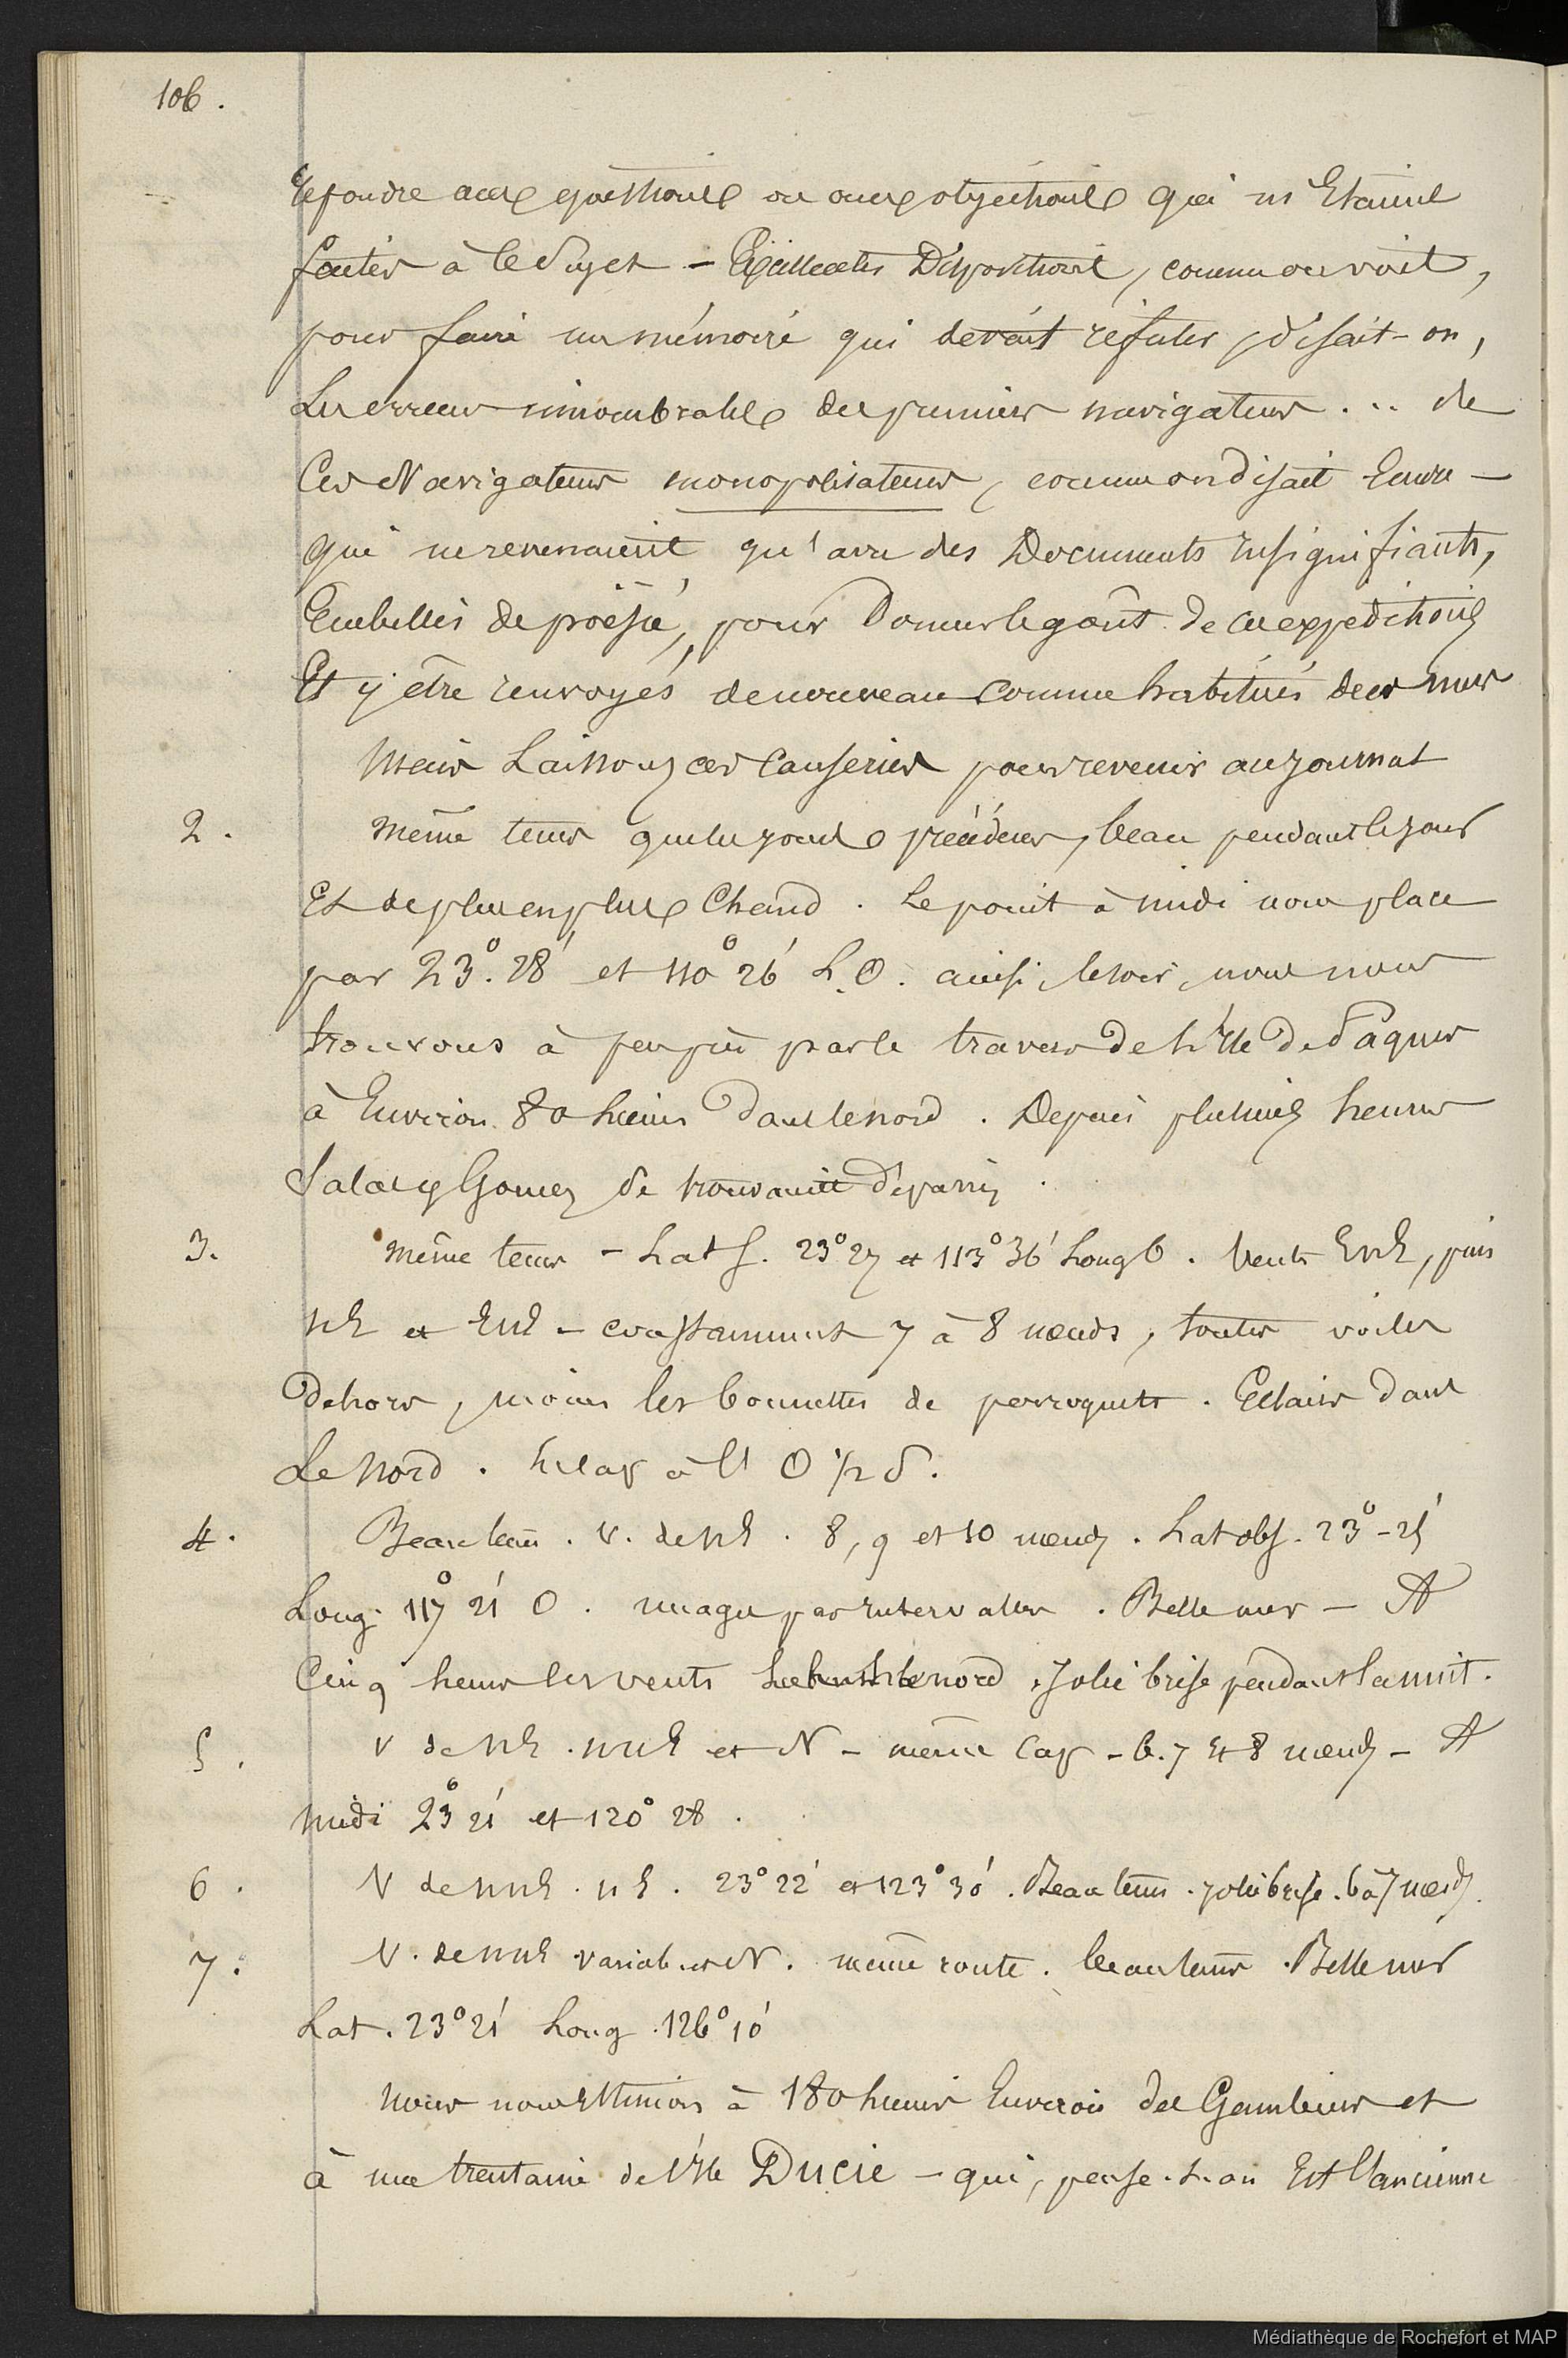 106.
répondre aux questions ou aux objections qui m'étaient
faites à ce sujet - Excellentes Dispositions, comme on voit,
pour faire un mémoire qui devait réfuter, disait-on,
Les erreurs innombrables des premiers navigateurs ... de
Ces Navigateurs monopolisateurs, comme on disait Encore -
qui ne revenaient qu'avec des Documents Insignifiants,
Embellis de poësie, pour Donner le goût de ces expeditions
Et y être renvoyés de nouveau comme habitués de ces mers
Mais Laissons ces Causeries pour revenir au journal
2. même tems que les jours précédens, beau pendant le jour
Et de plus en plus Chaud. Le point à midi nous place
par 23°. 28' et 110° 26' L. O. ainsi, le soir, nous nous
trouvons à peu près par le travers de L'Ile De Pâques
à Environ 80 Lieues Dans le nord. Depuis plusieurs heures
Salas y Gomez se trouvait Dépassé.
3. même tems - Lat S. 23° 27 et 113° 36' Long O. Vents ENE, puis
NE et ENE - constamment 7 à 8 nœuds, toutes voiles
Dehors, moins les bonnettes de perroquets. Eclairs Dans
Le Nord. Le Cap à l'O 1/2 S.
4. Beau tems. V. de NE. 8, 9 et 10 nœuds. Lat obs. 23° - 25'
Long. 117° 21' O. nuages par Intervalles. Belle mer - A
Cinq heures les vents le nord. Jolie brise pendant la nuit.
5. V de NE. NNE et N - même Cap - 6. 7 Et 8 nœuds - A
midi 23° 21' et 120° 28.
6. V de NNE. NE. 23° 22' et 123° 30'. Beau tems. jolie brise. 6 à 7 nœuds.
7. V. de NNE variab. et N. même route. beau tems. Belle mer
Lat. 23° 21' Long. 126° 10'
Nous nous Estimions à 180 Lieues Environ des Gambiers et
à une trentaine de l'Ile Ducie - qui, pense-t-on Est l'ancienne
Médiathèque de Rochefort et MAP